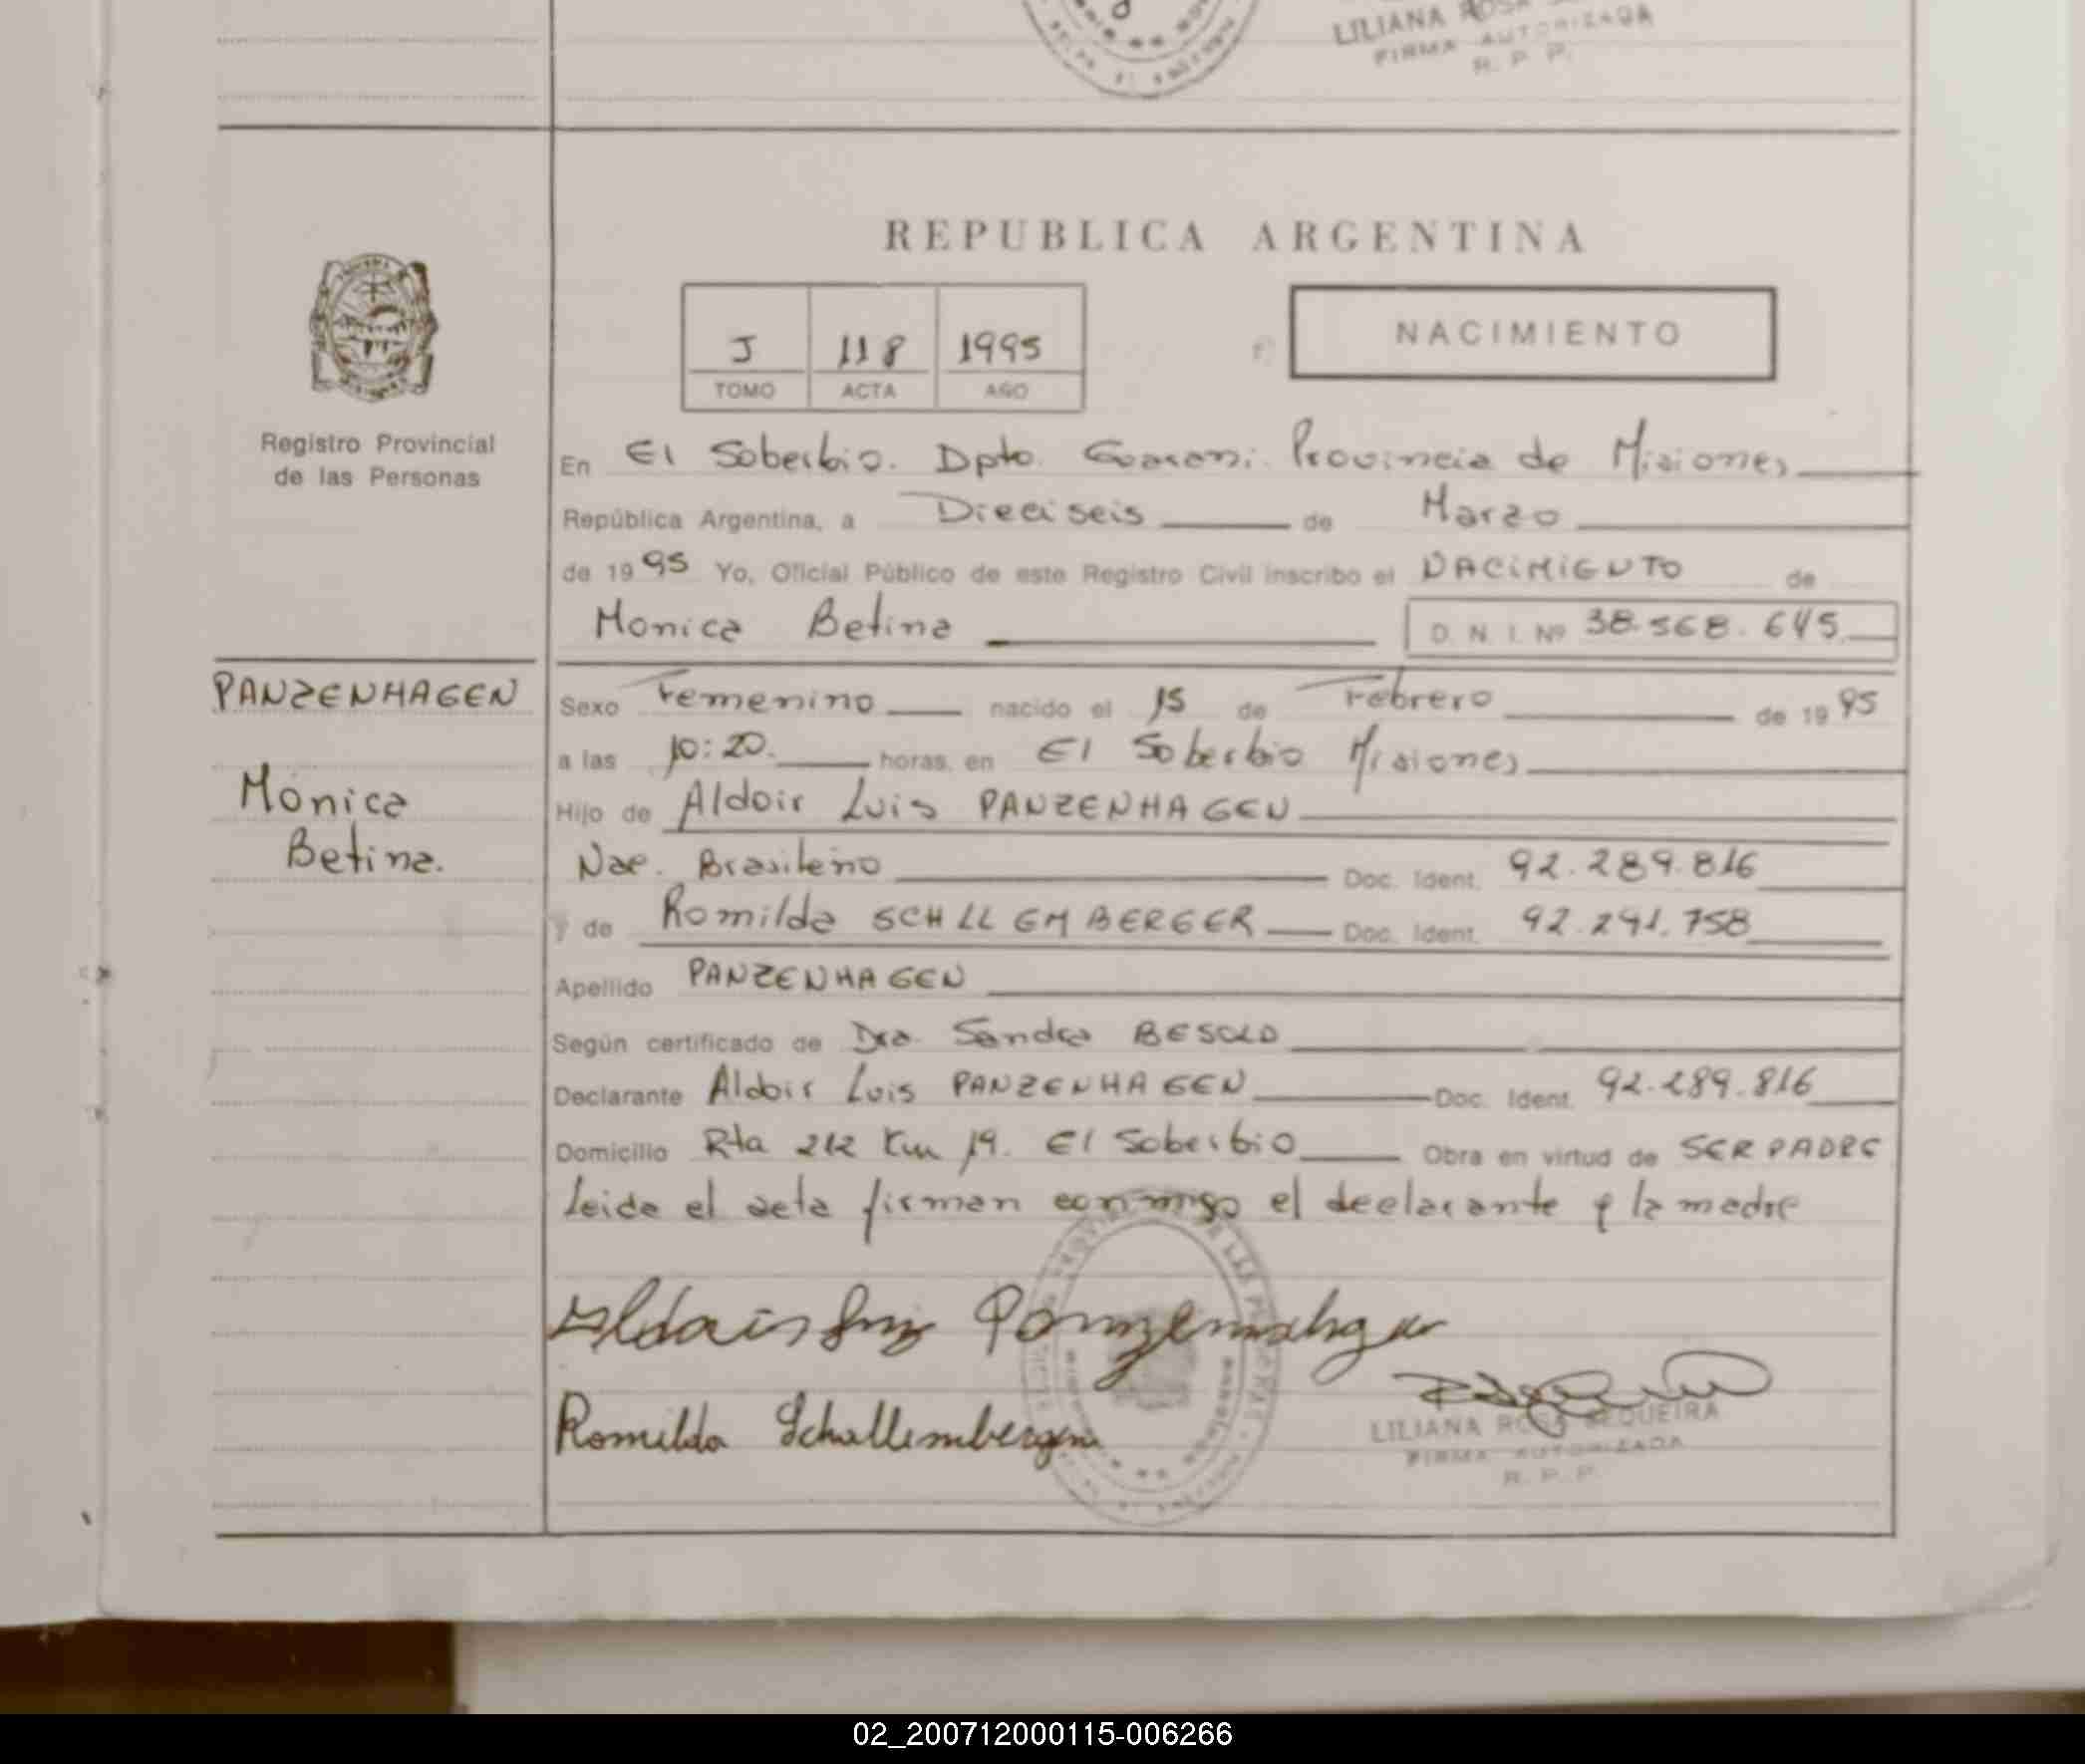 LILIANA ROSA
FIRMA AUTORIZADA
R. P. P.
REPUBLICA ARGENTINA
J 118 1995
TOMO ACTA AÑO
NACIMIENTO
Registro Provincial
de las Personas
En El Soberbio. Dpto. Guarani. Provincia de Misiones
República Argentina, a Dieciseis de Marzo
de 1995 Yo, Oficial Público de este Registro Civil inscribo el NACIMIENTO de
Monica Betina D. N. I. Nº 38.568.645
PANZENHAGEN
Mónica
Betina.
Sexo Femenino nacido el 15 de Febrero de 1995
a las 10:20. horas, en El Soberbio Misiones
Hijo de Aldoir Luis PANZENHAGEN
Nac. Brasileño Doc. Ident. 92.289.816
y de Romilda SCHLLEMBERGER Doc. Ident. 92.291.758
Apellido PANZENHAGEN
Según certificado de Dra. Sandra BESOLD
Declarante Aldoir Luis PANZENHAGEN Doc. Ident. 92.289.816
Domicilio Rta 212 Km 19. El Soberbio Obra en virtud de SER PADRE
Leida el acta firman conmigo el declarante y la madre
Romilda Schallemberger
LILIANA ROSA SEQUEIRA
FIRMA AUTORIZADA
R. P. P.
02_200712000115-006266